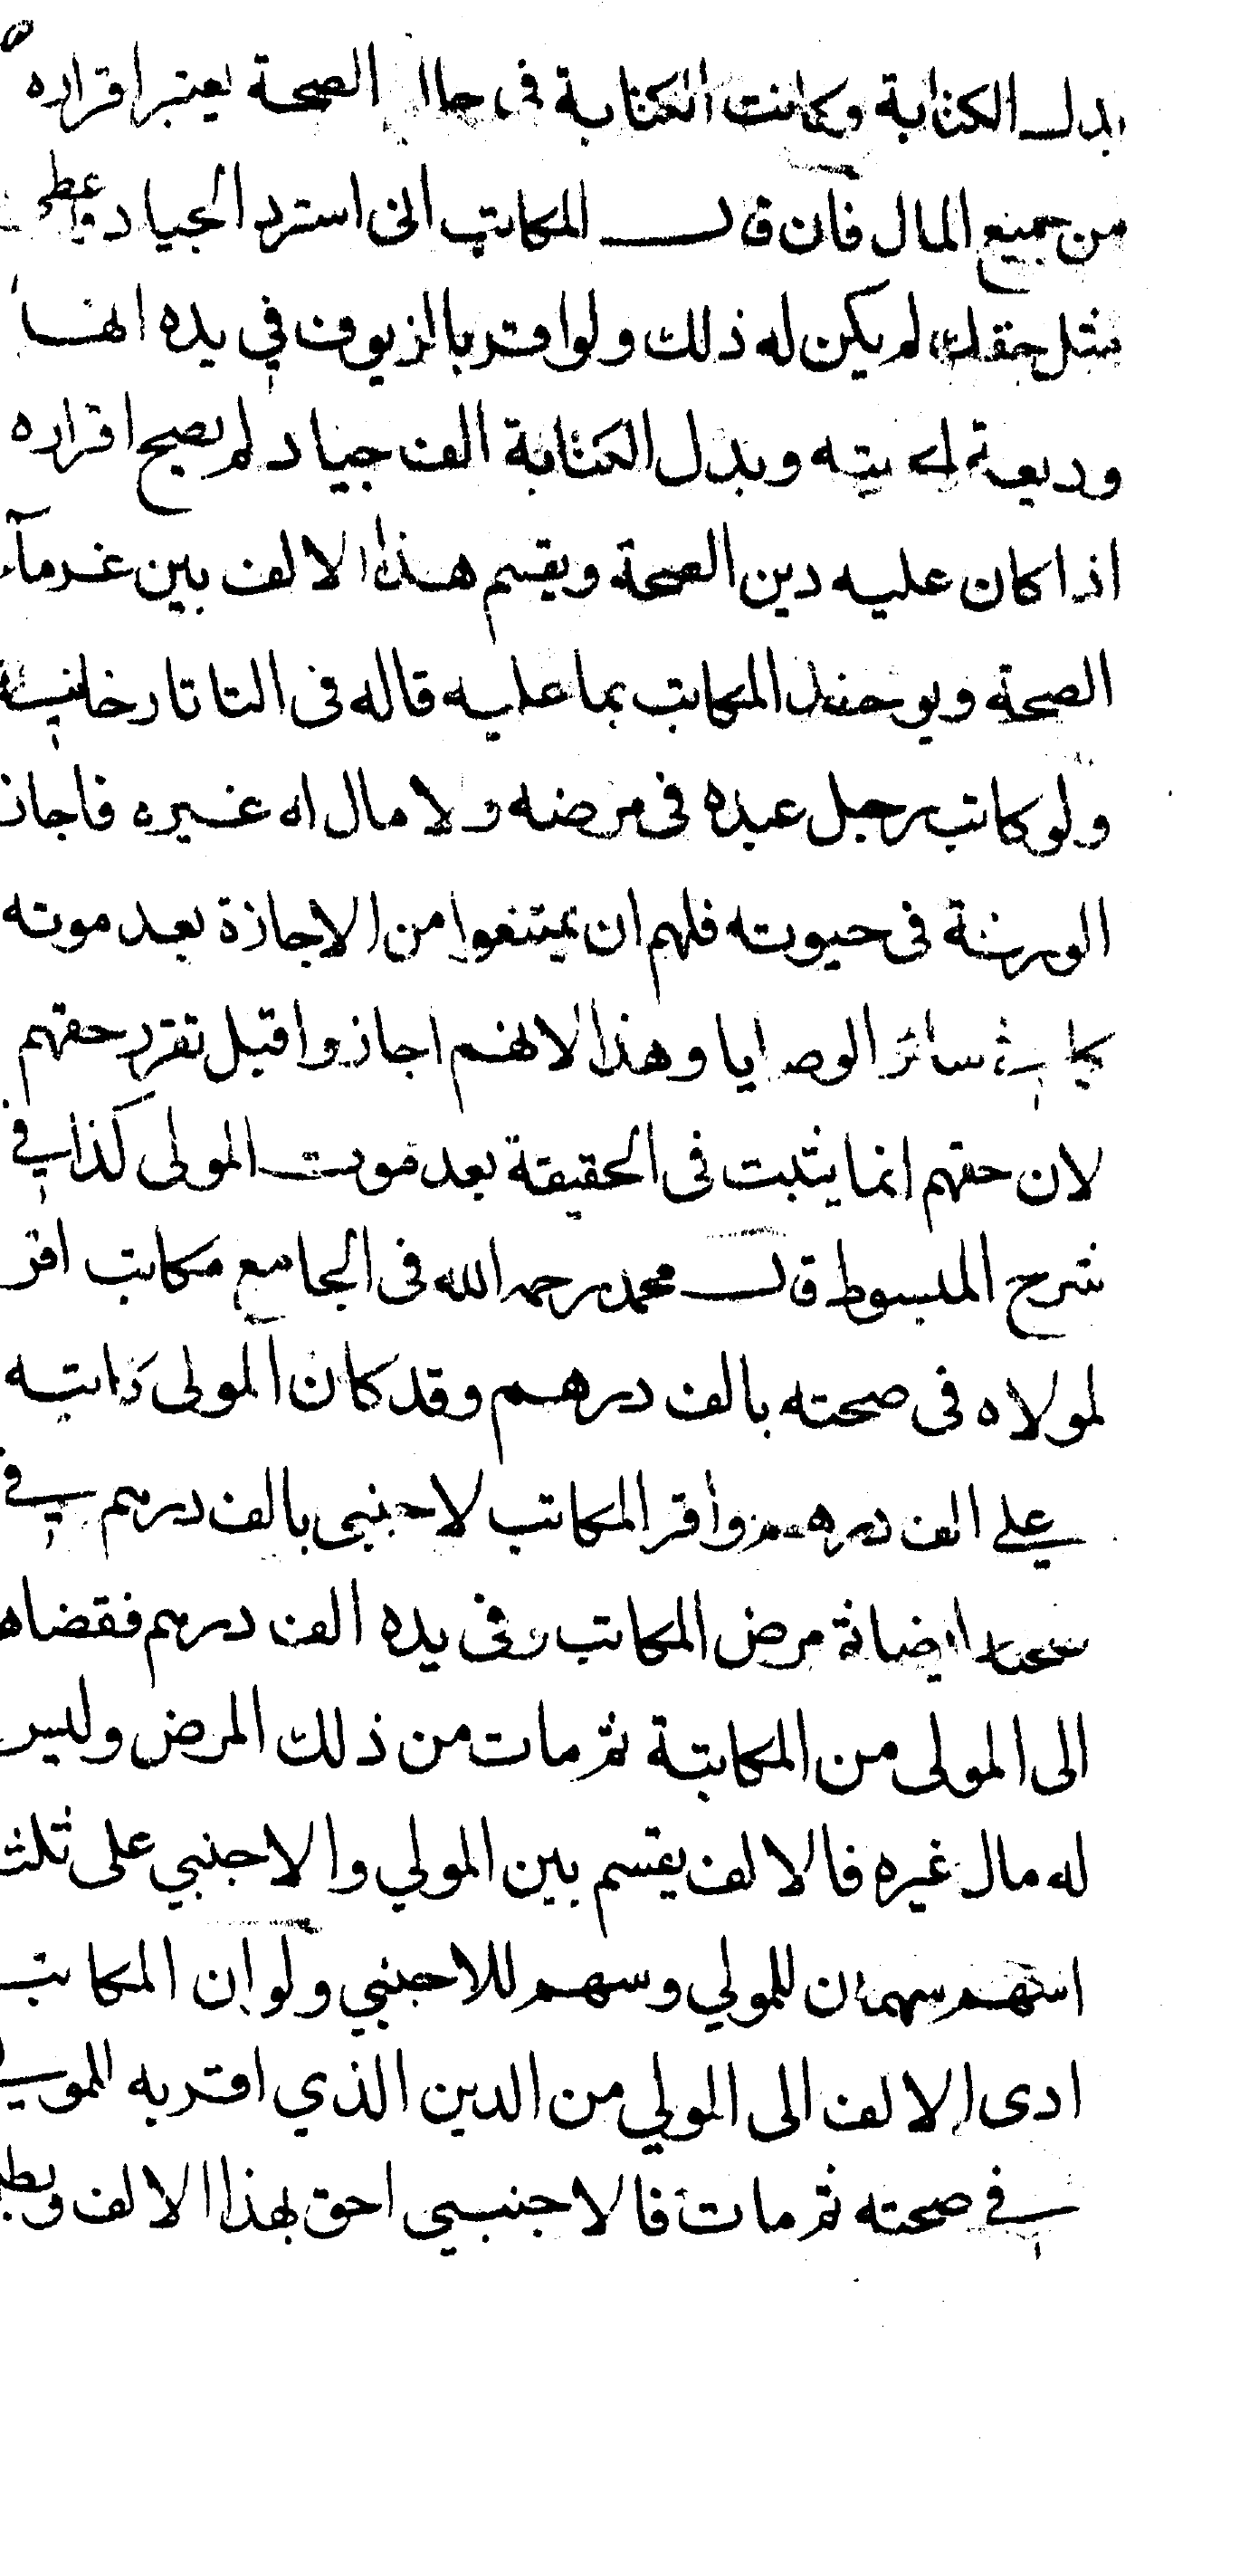 بدل الكتابة وكانت الكتابة في حال الصحة يعتبر اقراره
من جميع المال فان قال المكاتب انى استرد الجياد واعطى
مثل حقك لم يكن له ذلك ولو اقر بالزيوف في يده انها
وديعة له بيته وبدل الكتابة الف جياد لم يصح اقراره
اذا كان عليه دين الصحة ويقسم هذا الالف بين غرمآء
الصحة ويوخذ المكاتب بما عليه قاله فى التاتارخانية
ولو كاتب رجل عبده فى مرضه ولا مال له غيره فاجاز
الورثة فى حيوته فلهم ان يمتنعوا من الاجازة بعد موته
كما في سائر الوصايا وهذا لانهم اجازوا قبل تقرر حقهم
لان حقهم انما يثبت فى الحقيقة بعد موت المولى كذا في
شرح المبسوط قال محمد رحمه الله فى الجامع مكاتب اقر
لمولاه فى صحته بالف درهم وقد كان المولى كاتبه
على الف درهم واقر المكاتب لاجنبى بالف درهم في
صحته ايضا ثم مرض المكاتب وفى يده الف درهم فقضاها
الى المولى من المكاتبة ثم مات من ذلك المرض وليس
له مال غيره فالالف يقسم بين المولي والاجنبي على ثلث
اسهم سهمان للمولي وسهم للاجنبي ولو ان المكاتب
ادى الالف الى المولي من الدين الذي اقر به للمولي
في صحته ثم مات فالاجنبي احق بهذا الالف